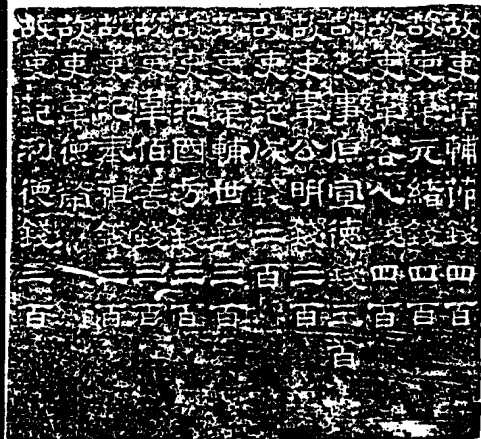 故吏韋輔節錢四百
故吏韋元緒錢四百
故吏韋容人錢四百
故從事原宣德錢三百
故吏韋公明錢三百
故吏范成錢三百
故吏韋輔世錢三百
故吏范國方錢三百
故吏韋伯善錢三百
故吏范奉祖錢三百
故吏韋德榮
故吏范利德錢三百